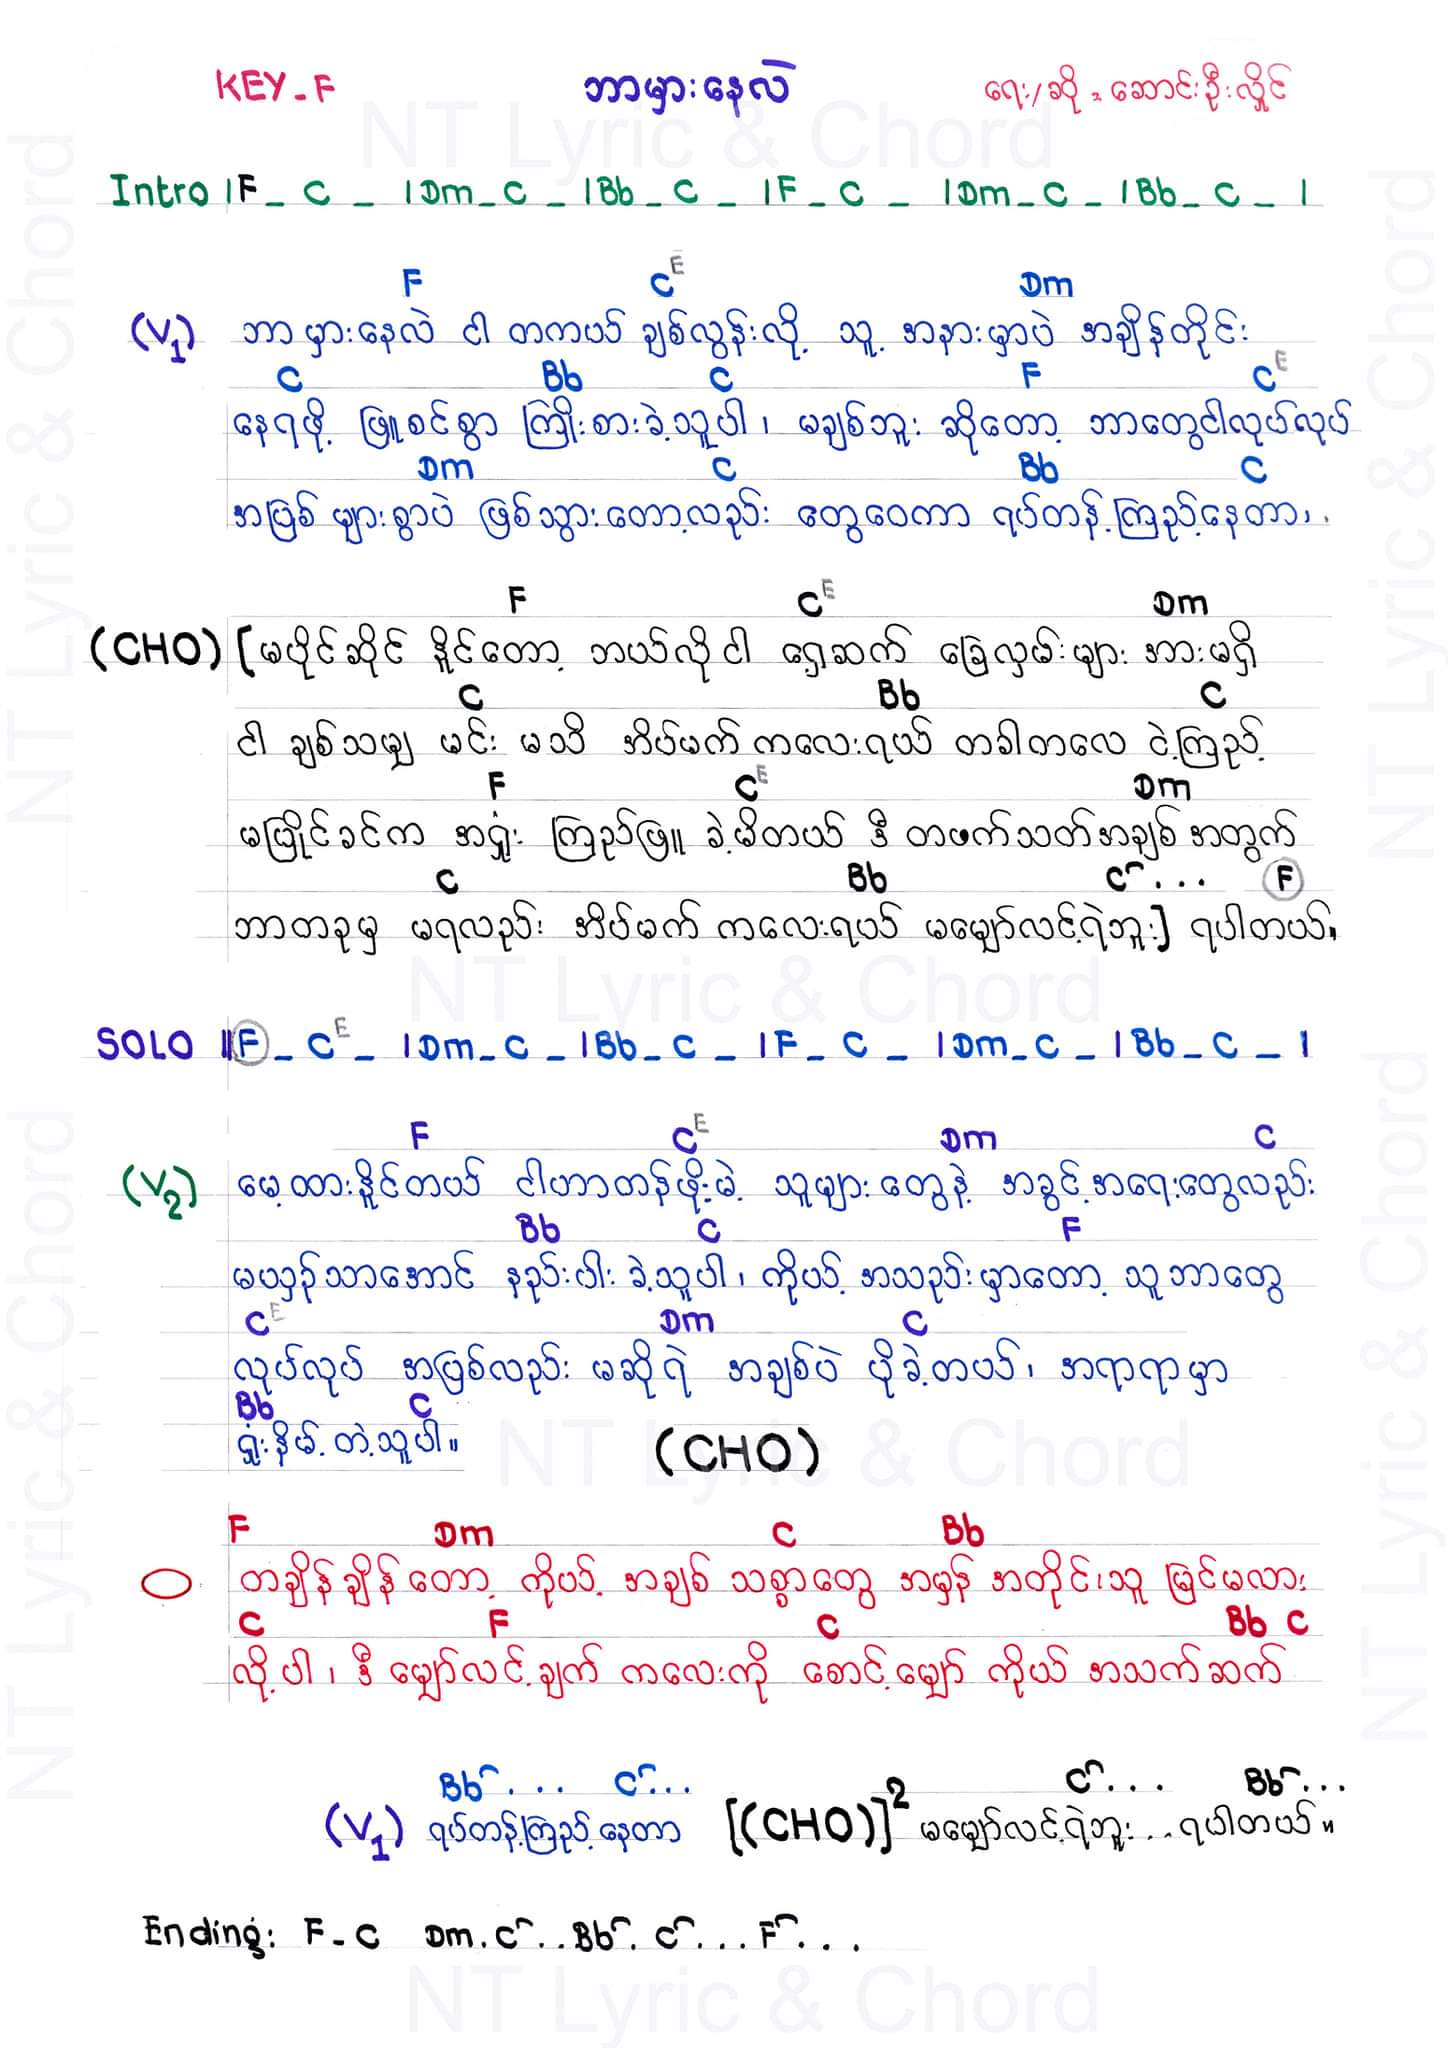 KEY_F ဘာမှားနေလဲ ရေး/ဆို = ဆောင်းဦးလှိုင်
Intro |F _ C _ |Dm _ C _ |Bb _ C _ |F _ C _ |Dm _ C _ |Bb _ C _ |
F C E Dm
(V1) ဘာမှားနေလဲ ငါ တကယ် ချစ်လွန်းလို့ သူ့ အနားမှာပဲ အချိန်တိုင်း
C Bb C F C E
နေရဖို့ ဖြူစင်စွာ ကြိုးစားခဲ့သူပါ၊ မချစ်ဘူး ဆိုတော့ ဘာတွေငါလုပ်လုပ်
Dm C Bb C
အပြစ် များစွာပဲ ဖြစ်သွားတော့လည်း တွေဝေကာ ရပ်တန့်ကြည့်နေတာ၊.
F C E Dm
(CHO) [မပိုင်ဆိုင် နိူင်တော့ ဘယ်လိုငါ ရှေ့ဆက် ခြေလှမ်းများ အားမရှိ
C Bb C
ငါ ချစ်သမျှ မင်း မသိ အိပ်မက်ကလေးရယ် တခါတလေ ငဲ့ကြည့်
F C E Dm
မပြိုင်ခင်က အရှုံး ကြည်ဖြူ ခဲ့မိတယ် ဒီ တဖက်သတ်အချစ် အတွက်
C Bb C ... F
ဘာတခုမှ မရလည်း အိပ်မက် ကလေးရယ် မမျှော်လင့်ရဲဘူး] ရပါတယ်။
SOLO ||F _ C E _ |Dm _ C _ |Bb _ C _ |F _ C _ |Dm _ C _ |Bb _ C _ |
F C E Dm C
(V2) မေ့ထားနိူင်တယ် ငါဟာတန်ဖိုးမဲ့ သူများတွေနဲ့ အခွင့်အရေးတွေလည်း
Bb C F
မယှဉ်သာအောင် နည်းပါးခဲ့သူပါ၊ ကိုယ့် အသည်းမှာတော့ သူဘာတွေ
C E Dm C
လုပ်လုပ် အပြစ်လည်း မဆိုရဲ အချစ်ပဲ ပိုခဲ့တယ်၊ အရာရာမှာ
Bb C
ရှုံးနိမ့်တဲ့သူပါ။ (CHO)
F Dm C Bb
တချိန်ချိန်တော့ ကိုယ့် အချစ် သစ္စာတွေ အမှန် အတိုင်း၊သူ မြင်မလား
C F C Bb C
လို့ပါ၊ ဒီ မျှော်လင့်ချက် ကလေးကို စောင့်မျှော် ကိုယ် အသက်ဆက်
Bb ... C ... C ... Bb ...
(V1) ရပ်တန့်ကြည့်နေတာ [(CHO)]2 မမျှော်လင့်ရဲဘူး...ရပါတယ်။
Ending: F - C Dm . C ..Bb . C ...F ...
NT Lyric & Chord